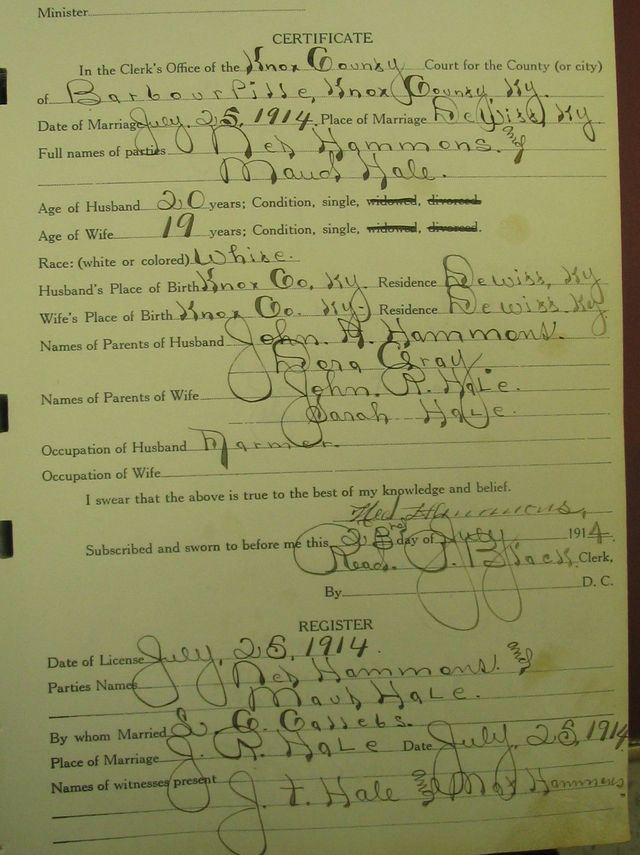 Minister
CERTIFICATE
In the Clerk's Office of the Knox County Court for the County (or city)
of Barbourville, Knox County Ky.
Date of Marriage July. 25, 1914. Place of Marriage Dewitt, Ky
Full names of parties Ned Hammons. and
Maud Hale.
Age of Husband 20 years; Condition, single, widowed, divorced
Age of Wife 19 years; Condition, single, widowed, divorced.
Race: (white or colored) White.
Husband's Place of Birth Knox Co, Ky. Residence Dewitt, Ky
Wife's Place of Birth Knox Co. Ky. Residence Dewitt, Ky
Names of Parents of Husband John. H. Hammons.
Dora Gray
Names of Parents of Wife John. R. Hale.
Sarah Hale.
Occupation of Husband Farmer.
Occupation of Wife
I swear that the above is true to the best of my knowledge and belief.
Ned Hammons,
Subscribed and sworn to before me this 23rd day of July, 1914.
Read. P. Black Clerk,
By D. C.
REGISTER
Date of License July, 25, 1914.
Parties Names Ned Hammons. and
Maud Hale.
By whom Married Gallebs.
Place of Marriage J. R. Hale Date July, 25, 1914
Names of witnesses present
J. T. Hale and Hammons